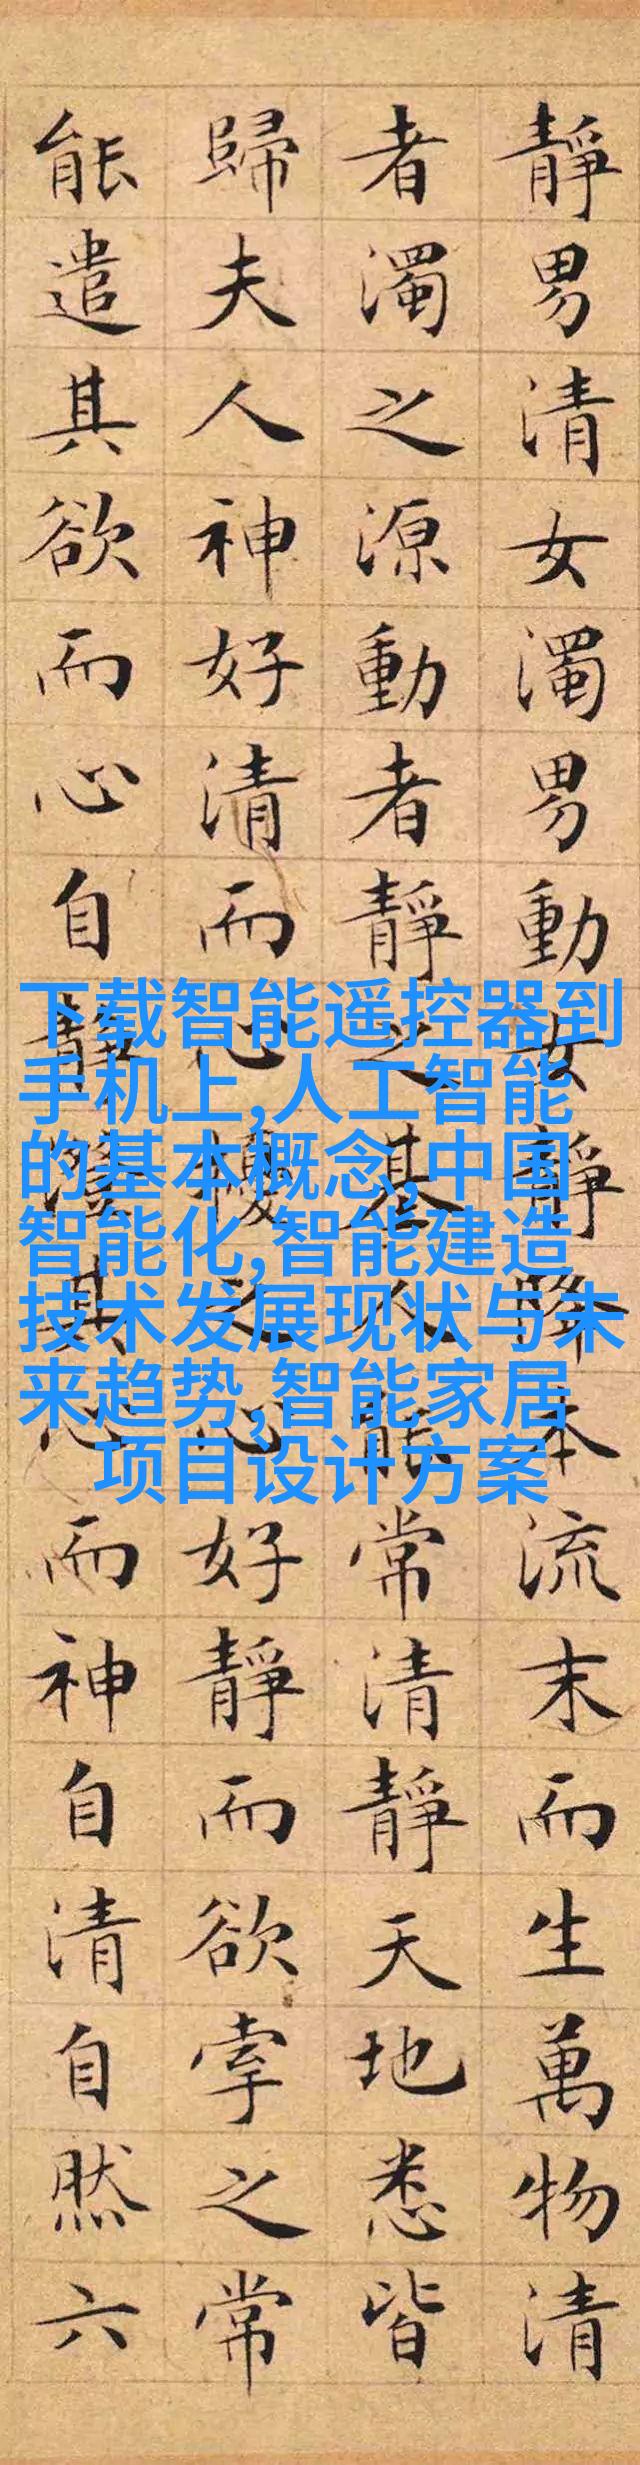 靜男清女濁男動女靜降本流末而生萬物清
者濁之源動者靜之基人能常清靜天地悉皆
歸夫人神好清而心擾之心好靜而欲牽之常
能遣其欲而心自靜澄其心而神自清自然六
下载智能遥控器到
手机上,人工智能
的基本概念,中国
智能化,智能建造
技术发展现状与未
来趋势,智能家居
项目设计方案